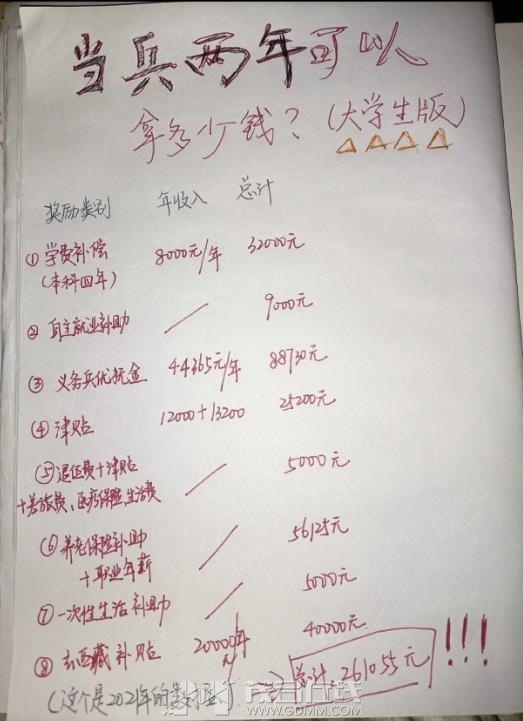 当兵两年可以
拿多少钱？（大学生版）
奖励类别 年收入 总计
① 学费补偿 8000元/年 32000元
（本科四年）
② 自主就业补助 / 9000元
③ 义务兵优抚金 44365元/年 88730元
④ 津贴 12000+13200 25200元
⑤ 退伍费+津贴 / 5000元
+差旅费、医疗保险、生活费
⑥ 养老保险补助 / 56125元
+职业年薪
⑦ 一次性生活补助 / 5000元
⑧ 去西藏补贴 20000元/年 40000元
（这个是2021年的数据） => 总计：261055元!!!
茂名在线
WWW.GDMM.COM